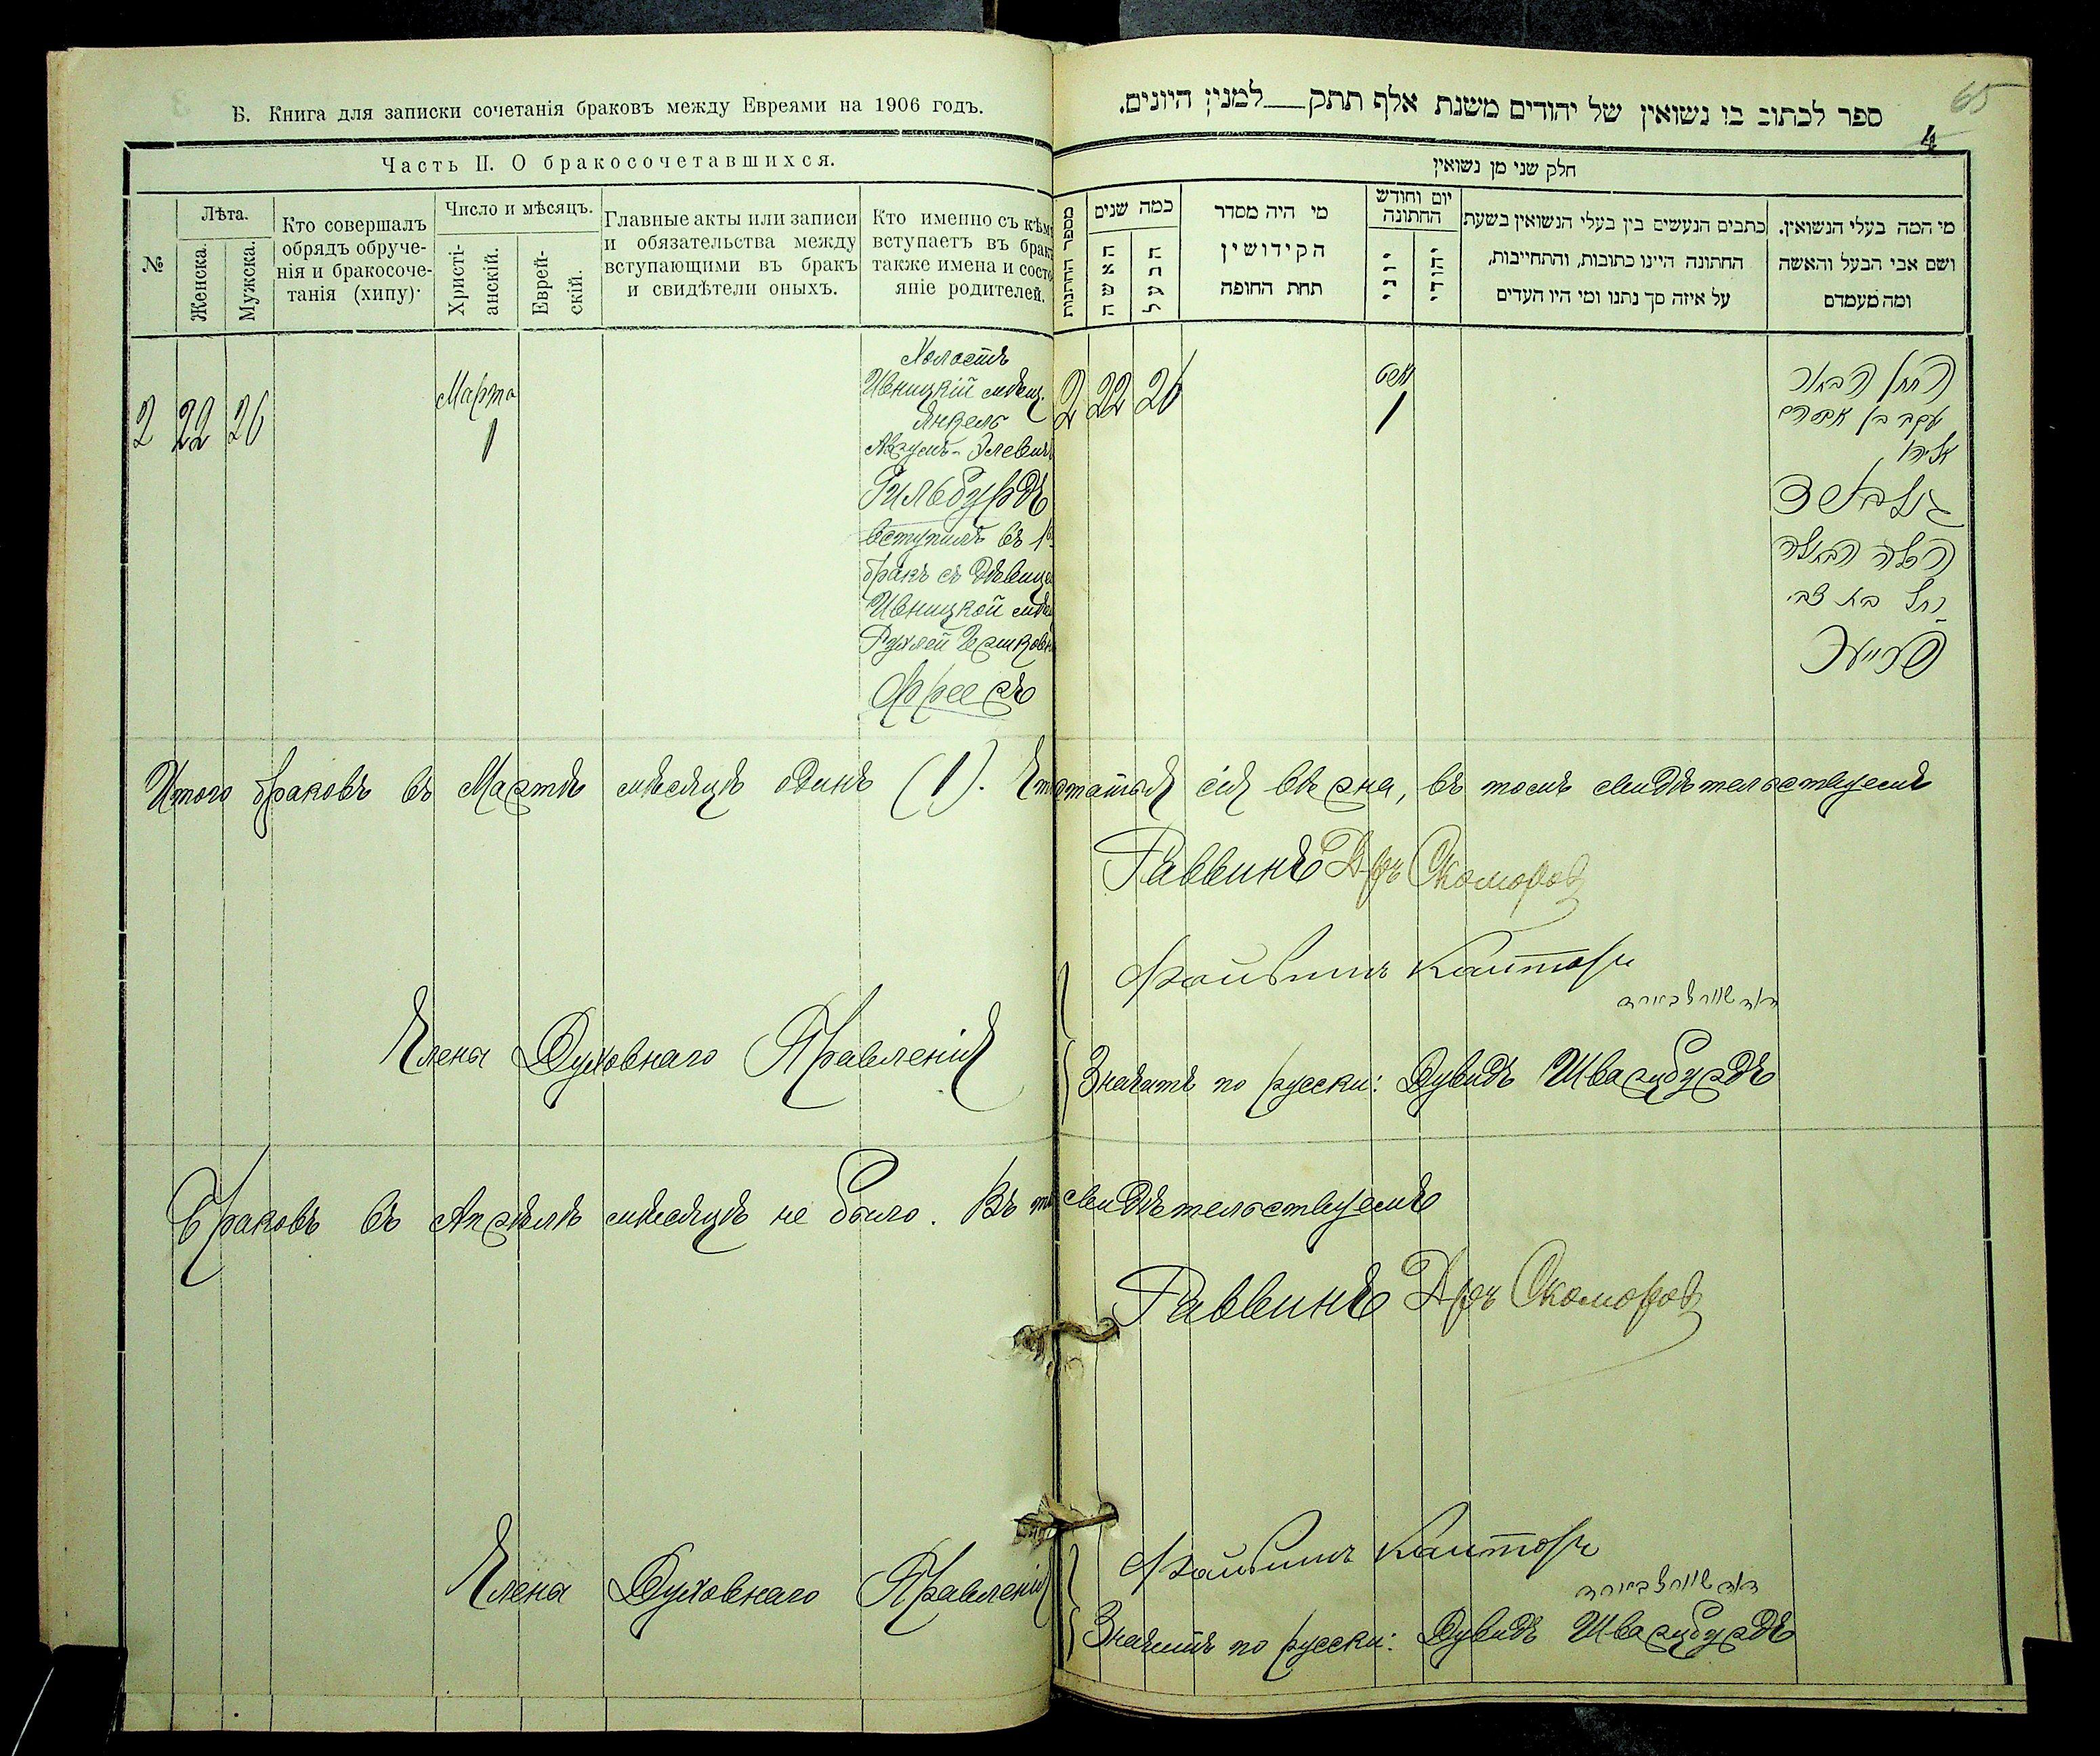 Б. Книга для записки сочетанія браковъ между Евреями на 1906 годъ.
Часть II. О бракосочетавшихся.
№
Лѣта.
Женска.
Мужска.
Кто совершалъ
обрядъ обруче-
нія и бракосоче-
танія (хипу)
Число и мѣсяцъ.
Христі-
анскій.
Еврей-
скій.
Главные акты или записи
и обязательства между
вступающими въ бракъ
и свидѣтели оныхъ.
Кто именно съ кѣмъ
вступаетъ въ бракъ
также имена и состо
яніе родителей.
2 22 26
Марта
1
Холостъ
Ивницкій мѣщ.
Янкель
Аврумъ-Элевичъ
Гильбурдъ
вступилъ въ 1й
бракъ съ дѣвицей
Ивницкой мѣщ
Рухлей Гершковн
Фрееръ
65
4
ספר לכתוב בו נשואין של יהודים משנת אלף תתק למנין היונים.
חלק שני מן נשואין
מספר החתונות
כמה שנים
האשה
הבעל
מי היה מסדר
הקידושין
תחת החופה
יום וחודש
החתונה
יוני
יהודי
כתבים הנעשים בין בעלי הנשואין בשעת
החתונה היינו כתובות, והתחייבות,
על איזה סך נתנו ומי היו העדים
מי המה בעלי הנשואין.
ושם אבי הבעל והאשה
ומה מעמדם
2 22 26
מארט
1
החתן הבחור
יעקב בן אברהם
אליהו
גילבורד
הכלה הבתולה
רחל בת צבי
פרייער
Итого браковъ въ Мартѣ мѣсяцѣ одинъ (1). Что статья сія вѣрна, въ томъ свидѣтельствуемъ
Раввинъ Д-ръ Скоморов
Члены Духовнаго Правленія
Файвишъ Канторъ
דוד שווארצבורד
Значитъ по русски: Дувидъ Шварцбурдъ
Браковъ въ Апрѣлѣ мѣсяцѣ не было. Въ томъ свидѣтельствуемъ
Раввинъ Д-ръ Скоморов
Члены Духовнаго Правленія
Файвишъ Канторъ
דוד שווארצבורד
Значитъ по русски: Дувидъ Шварцбурдъ